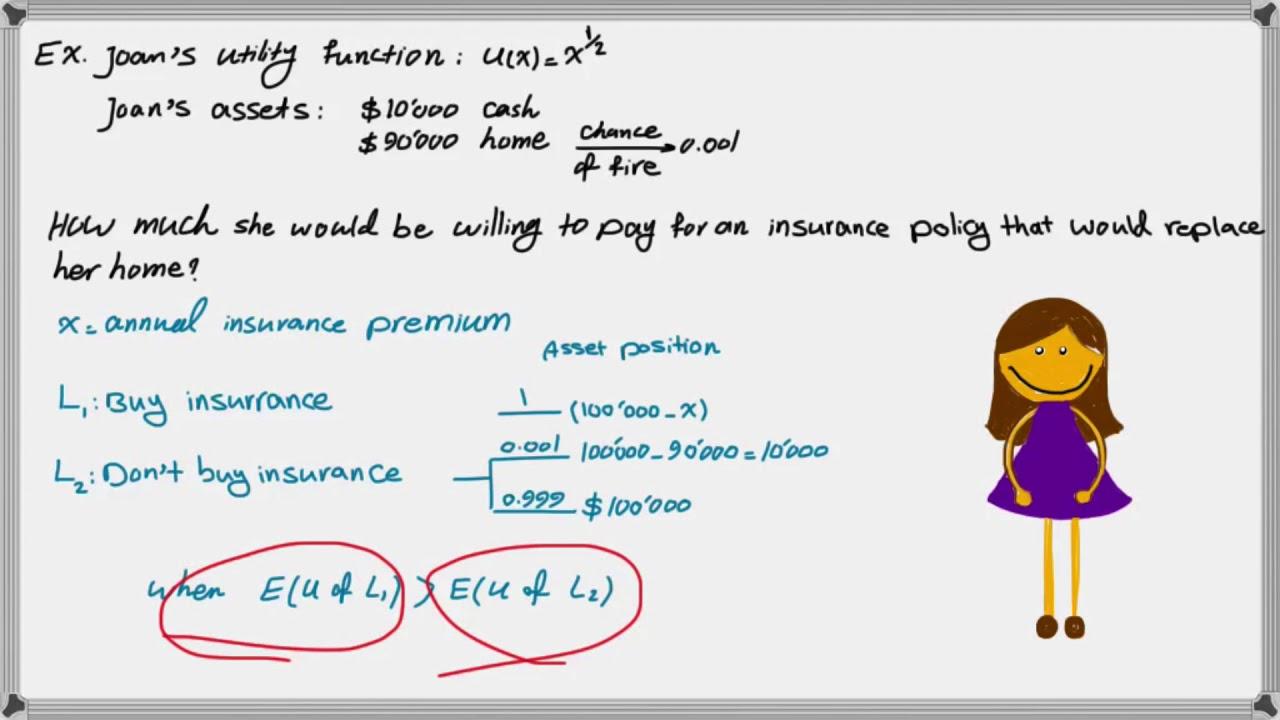 Ex. Joan's utility function: u(x) = x^1/2
Joan's assets: $10'000 cash
$90'000 home chance of fire → 0.001
How much she would be willing to pay for an insurance policy that would replace
her home?
x = annual insurance premium
Asset position
L₁: Buy insurrance 1 (100'000 - x)
0.001 100'000 - 90'000 = 10'000
L₂: Don't buy insurance
0.999 $100'000
when E(u of L₁) > E(u of L₂)